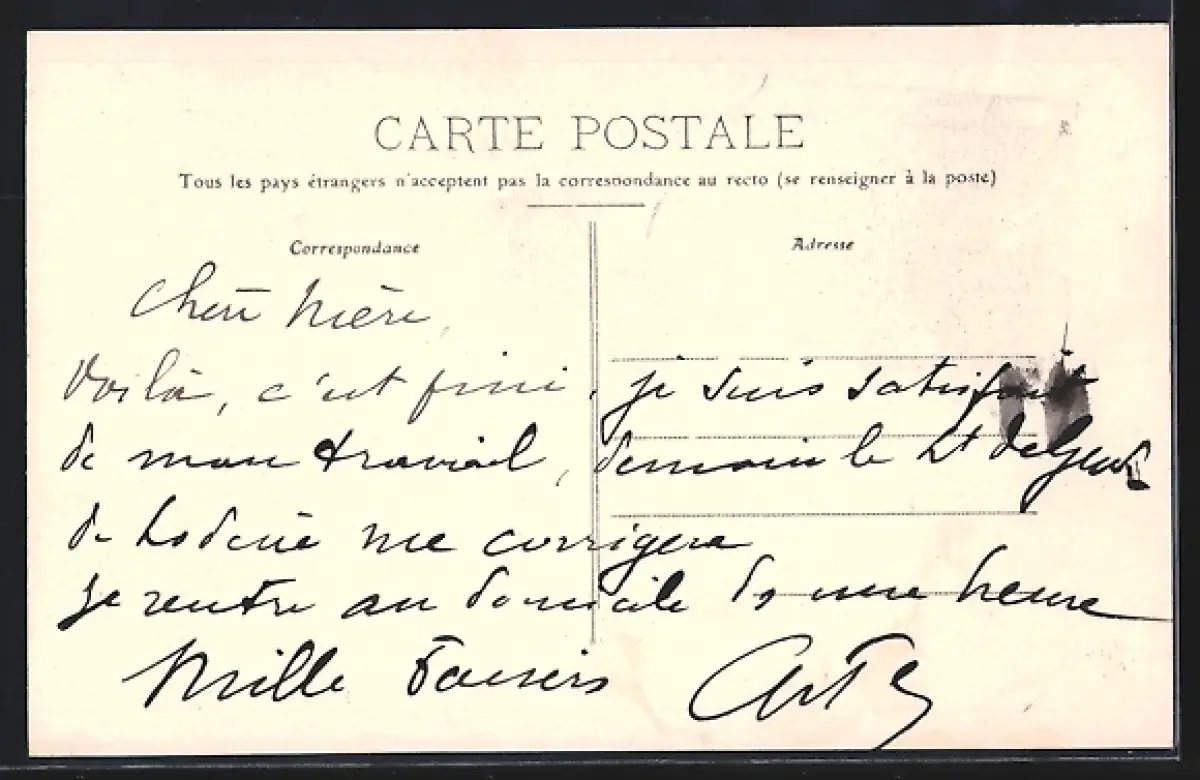 CARTE POSTALE
Tous les pays étrangers n'acceptent pas la correspondance au recto (se renseigner à la poste)
Correspondance
Adresse
Chère Mère,
Voilà, c'est fini, je suis satisfait
de mon travail, demain le Lt de
de me corrigera
Je rentre au domicile ds une heure
Mille Baisers